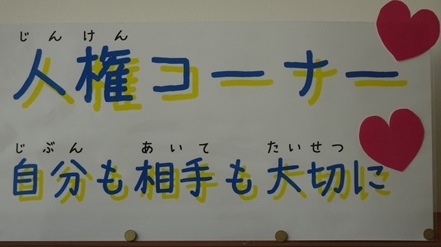 じんけん
人権コーナー
じぶん あいて たいせつ
自分も相手も大切に